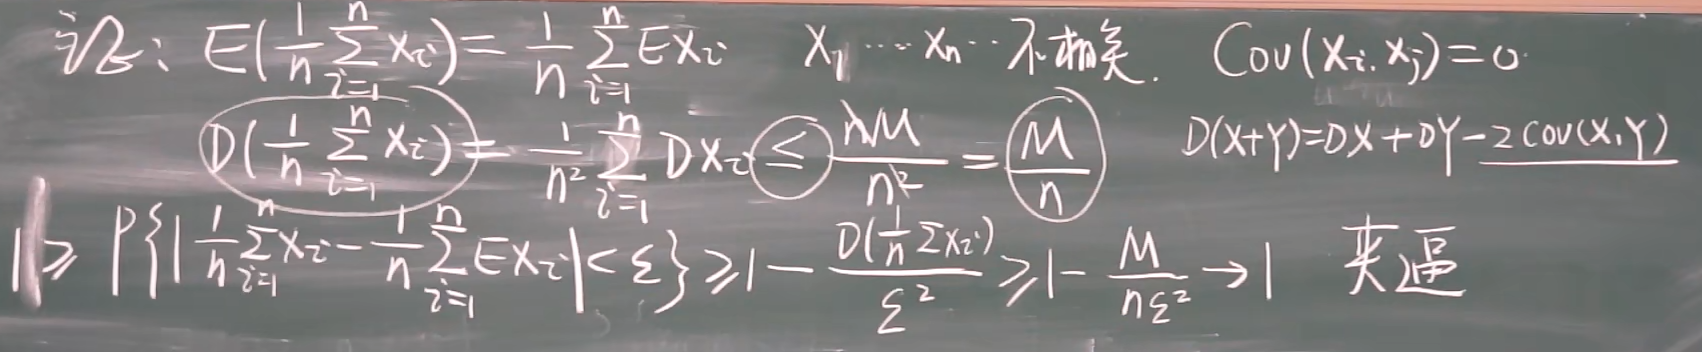 证: E(1/n ∑_{i=1}^{n} X_i) = 1/n ∑_{i=1}^{n} EX_i X_1 ⋯ X_n ⋯ 不相关. Cov(X_i, X_j) = 0.
D(1/n ∑_{i=1}^{n} X_i) = 1/n² ∑_{i=1}^{n} DX_i ≤ nM/n² = M/n D(X+Y)=DX+DY-2Cov(X,Y)
1 ≥ P{|1/n ∑_{i=1}^{n} X_i - 1/n ∑_{i=1}^{n} EX_i| < ε} ≥ 1 - D(1/n ∑X_i)/ε² ≥ 1 - M/nε² → 1 夹逼